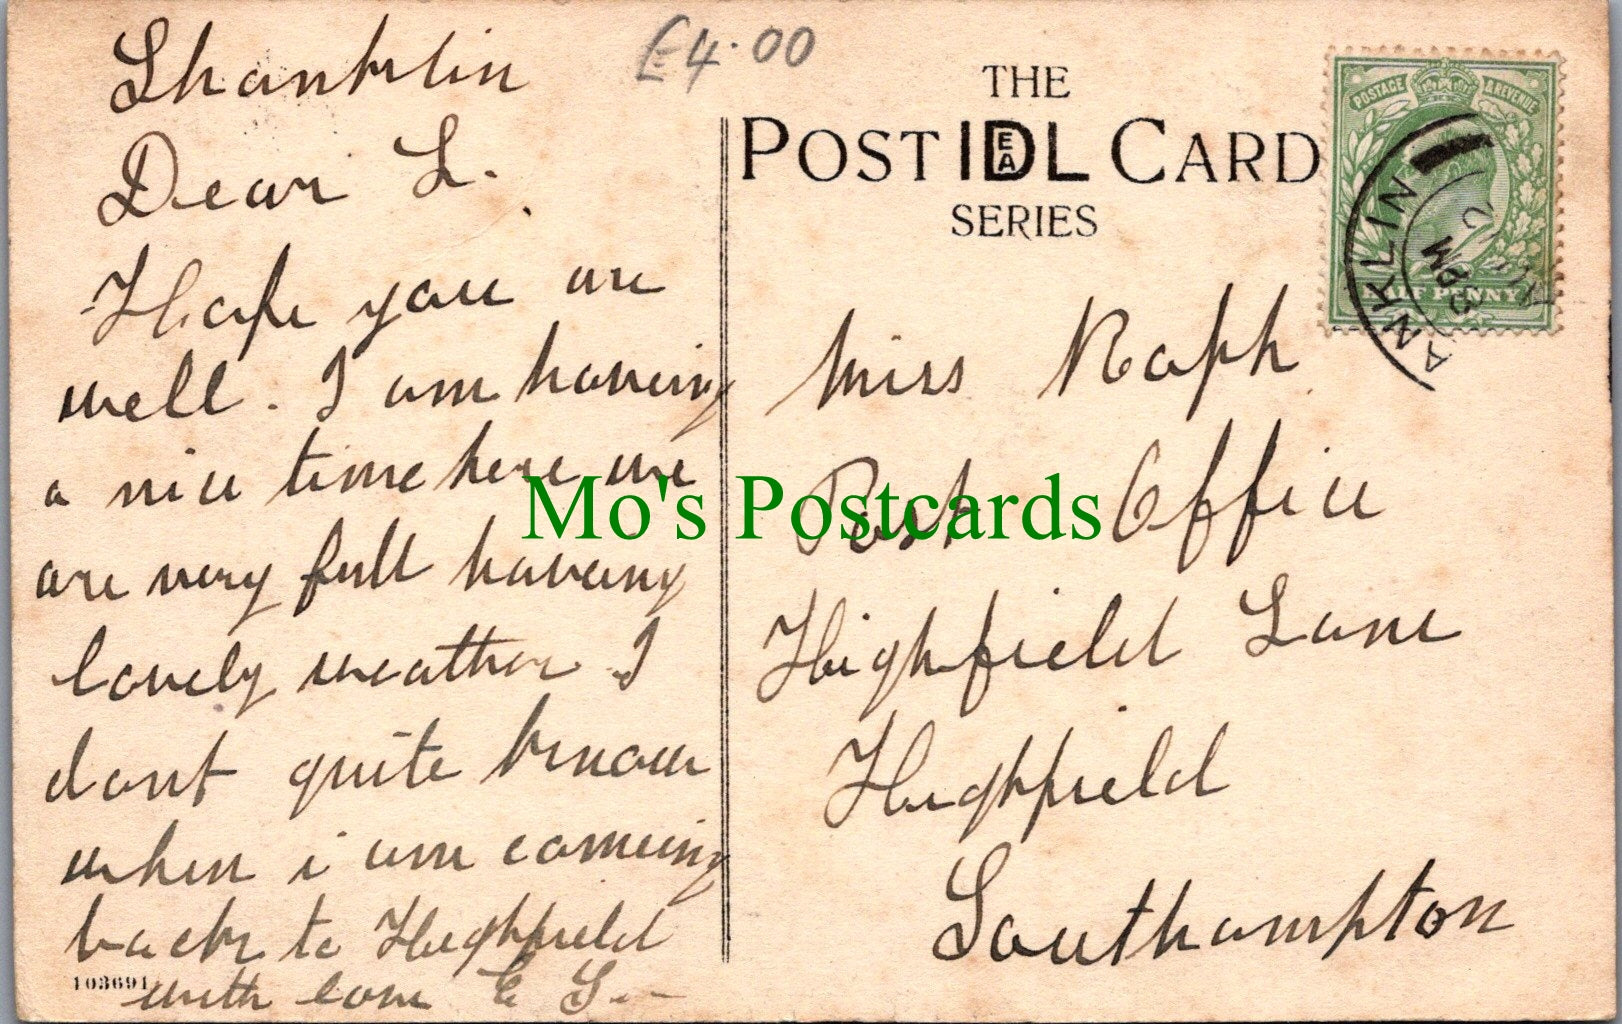 Shanklin
Dear L.
Hope you are
well. I am haveing
a nice time here we
are very full haveing
lovely weather I
dont quite know
when i am comeing
back to Highfield
with love E S.
103691
£4.00
THE
POST IDEAL CARD
SERIES
POSTAGE & REVENUE
HALF PENNY
ANKLIN
PM
Miss Raph
Post Office
Highfield Lane
Highfield
Southampton
Mo's Postcards